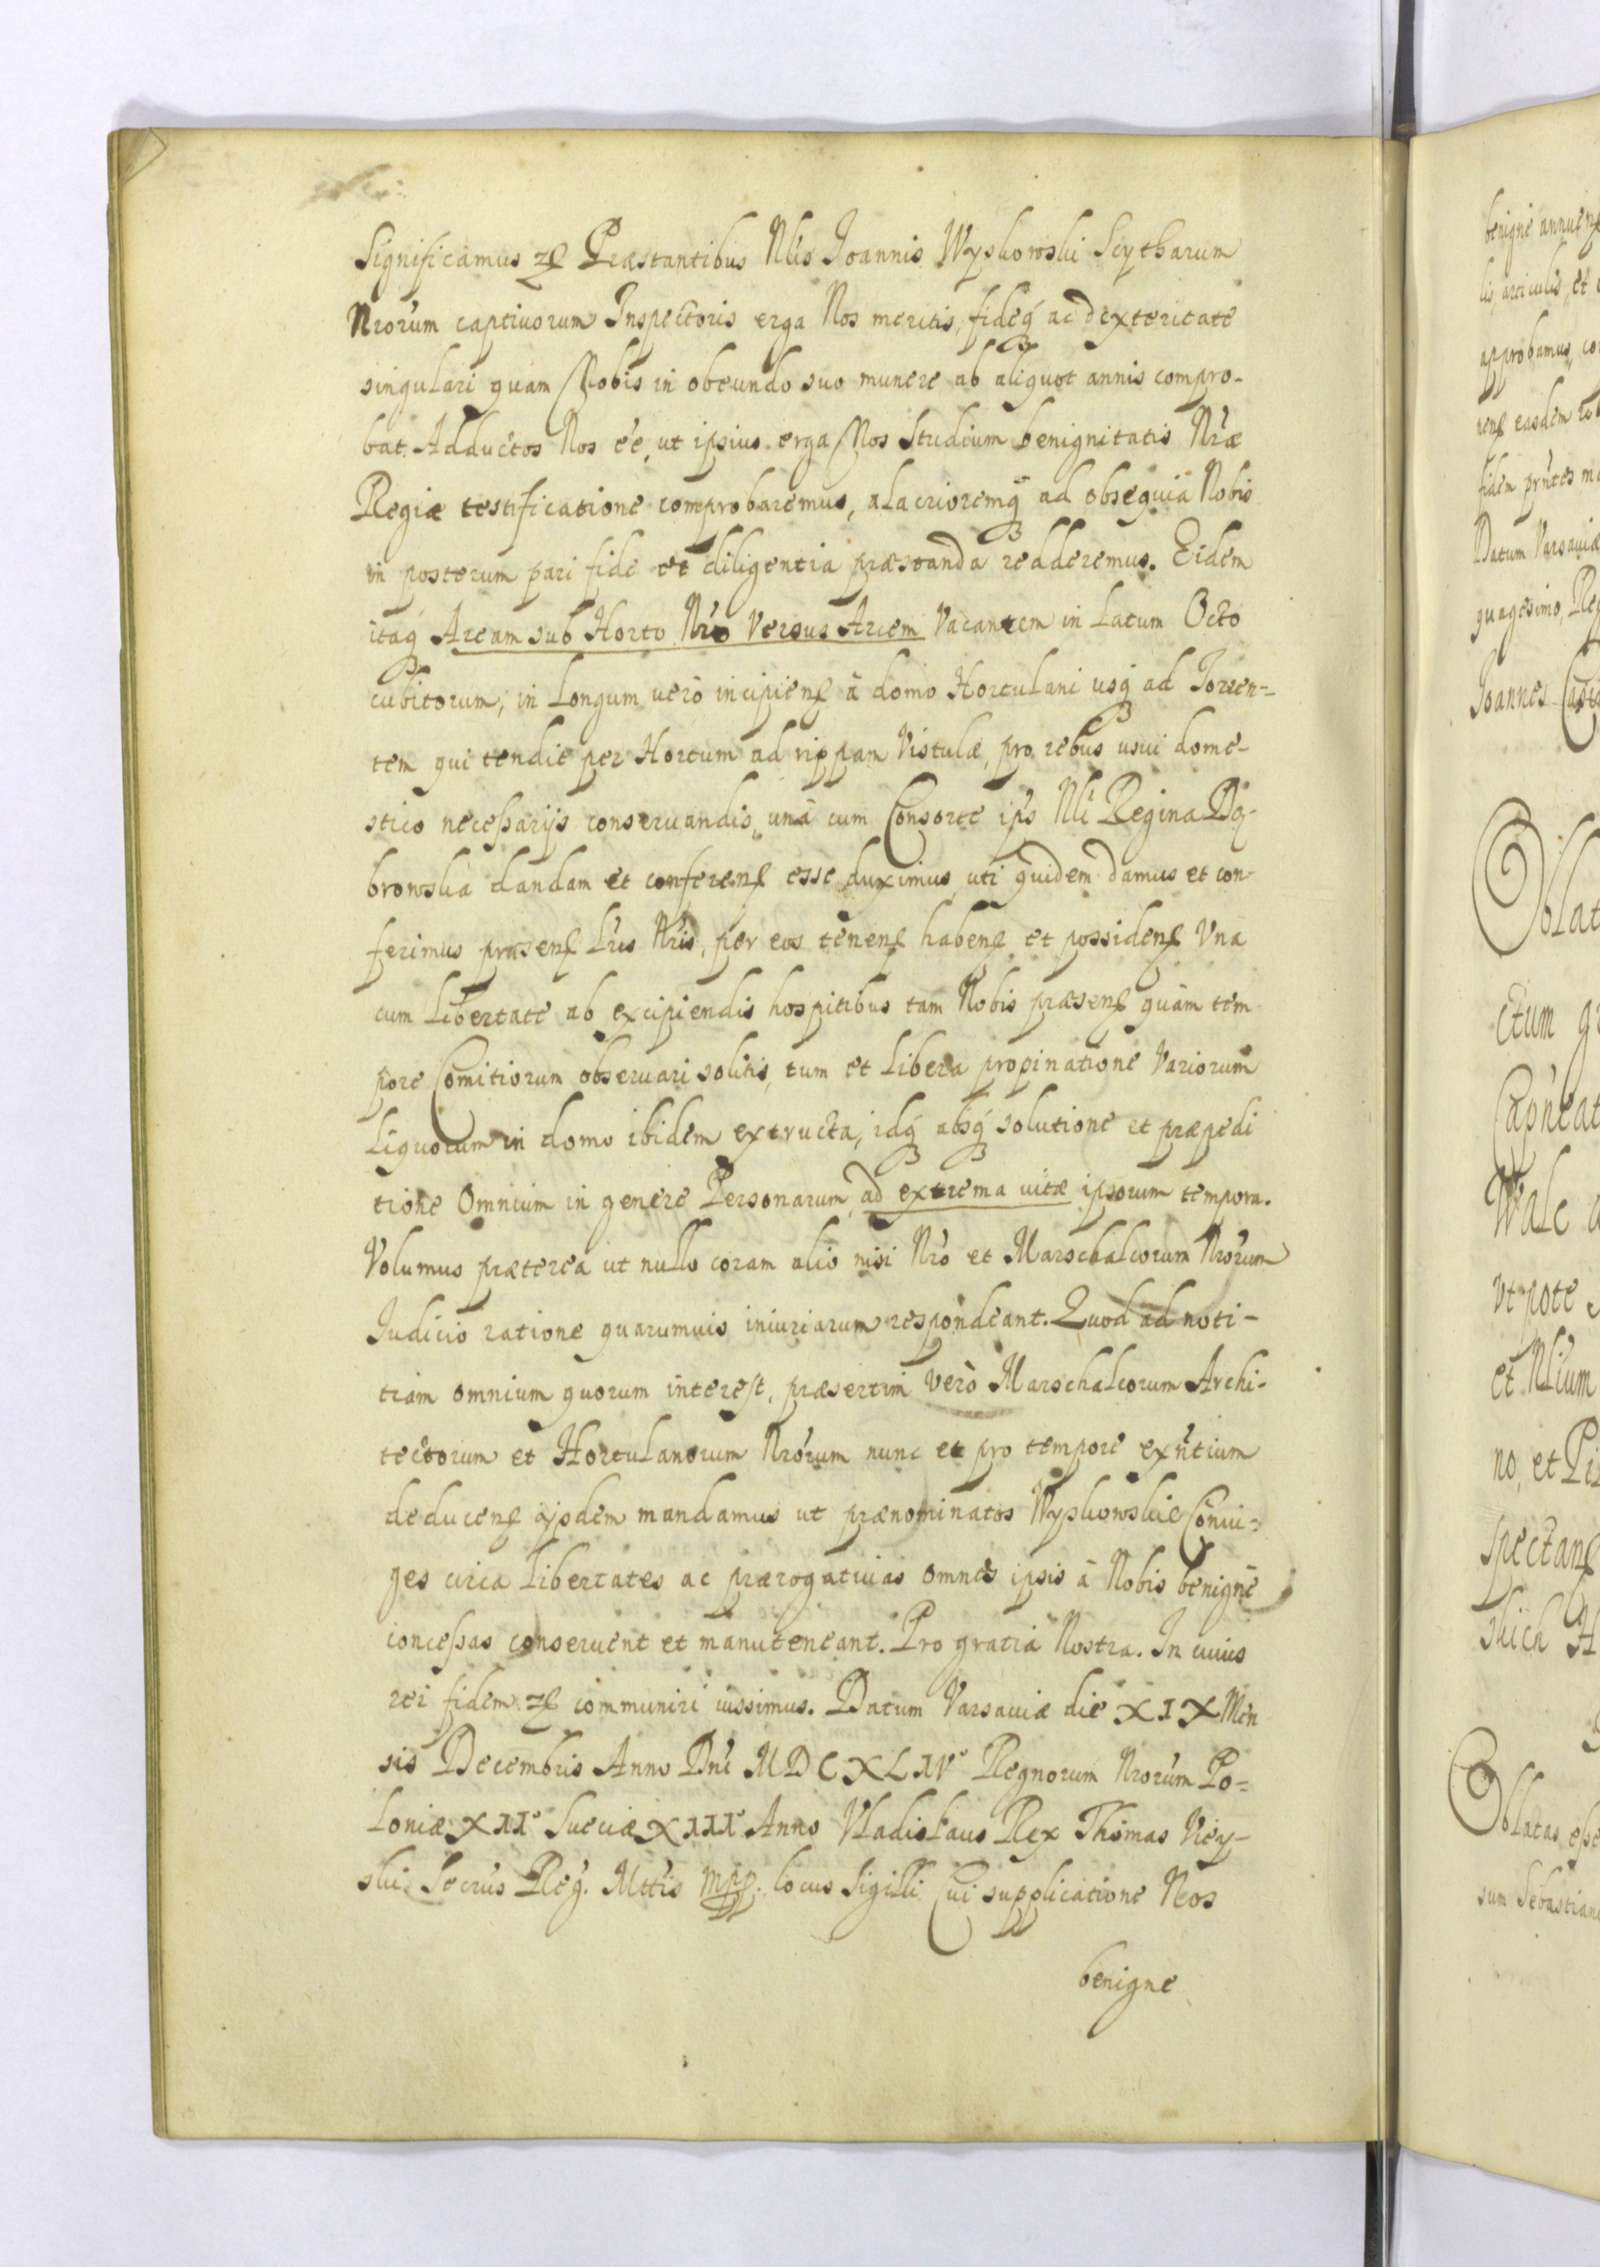 Significamus etc Præstantibus Nlis Joannis Wyskowski Scytharum
Nrorum captivorum Inspectoris erga Nos meritis, fideq ac dexteritate
singulari quam Nobis in obeundo suo munere ab aliquot annis compro-
bat. Adductos Nos ee, ut ipsius erga Nos Studium benignitatis Nræ
Regiæ testificatione comprobaremus, alacrioremq ad obsequia Nobis
in posterum pari fide et diligentia præstanda redderemus. Eidem
itaq Aream sub Horto Nro Versus Arcem Vacantem in Latum Octo
cubitorum, in Longum verò incipiens à domo Hortulani usq ad Torren-
tem qui tendit per Hortum ad rippam Vistulæ, pro rebus usui dome-
stico necessarijs conservandis, unà cum Consorte ips Nli Regina Dą-
browska dandam et conferens esse duximus, uti quidem damus et con-
ferimus præsens Lris Nris, per eos tenens habens et possidens Una
cum Libertate ab excipiendis hospitibus tam Nobis præsens quàm tem
pore Comitiorum observari solitis, tum et Libera propinatione Variorum
Liquorum in domo ibidem extructa, idq absq solutione et præpedi
tione Omnium in genere Personarum, ad extrema vitæ ipsorum tempora.
Volumus præterea ut nullo coram alio nisi Nro et Marschalcorum Nrorum
Judicio ratione quarumvis iniuriarum respondeant. Quod ad noti-
tiam omnium quorum interest, præsertim verò Marschalcorum Archi-
tectorum et Hortulanorum Nrorum nunc et pro tempore exntium
deducens ijsdem mandamus ut prænominatos Wyskowskie Coniu-
ges circa Libertates ac prærogativas omnes ipsis à Nobis benignè
concessas conservent et manuteneant. Pro gratia Nostra. In cuius
rei fidem etc communiri iussimus. Datum Varsaviæ die XIX Men
sis Decembris Anno Dni MDCXLIV° Regnorum Nrorum Po-
loniæ XII° Sueciæ XIII° Anno Vladislaus Rex Thomas Viey-
ski Secrus Reg. Mttis mpp. locus Sigilli Cui supplicatione Nos
benigne
benigne annuens
lis articulis, et
approbamus, co
nens easdem ro
fidem prntes ma
Datum Varsaviæ
quagesimo, Reg
Joannes Casi
Oblat
ctum
Capneat
Wale
Ut pote
et Nlium
no, et Pi
spectans
skich
Oblatas esse
sum Sebastian